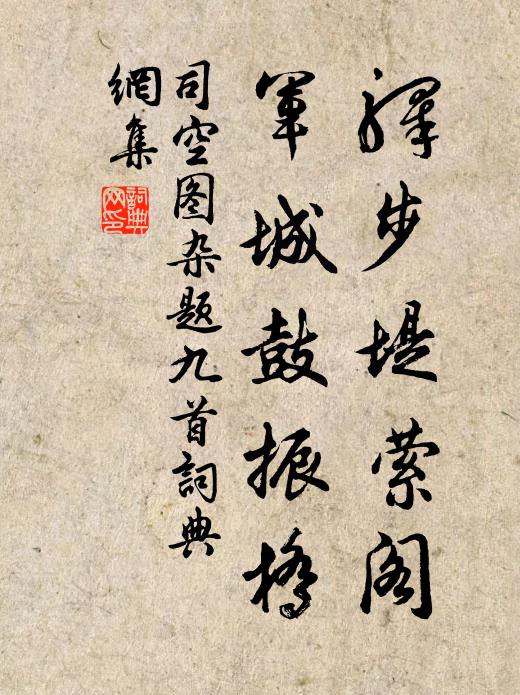 驛步堤縈阁
軍城鼓振橋
司空图杂题九首詞典
網集
詞典網印